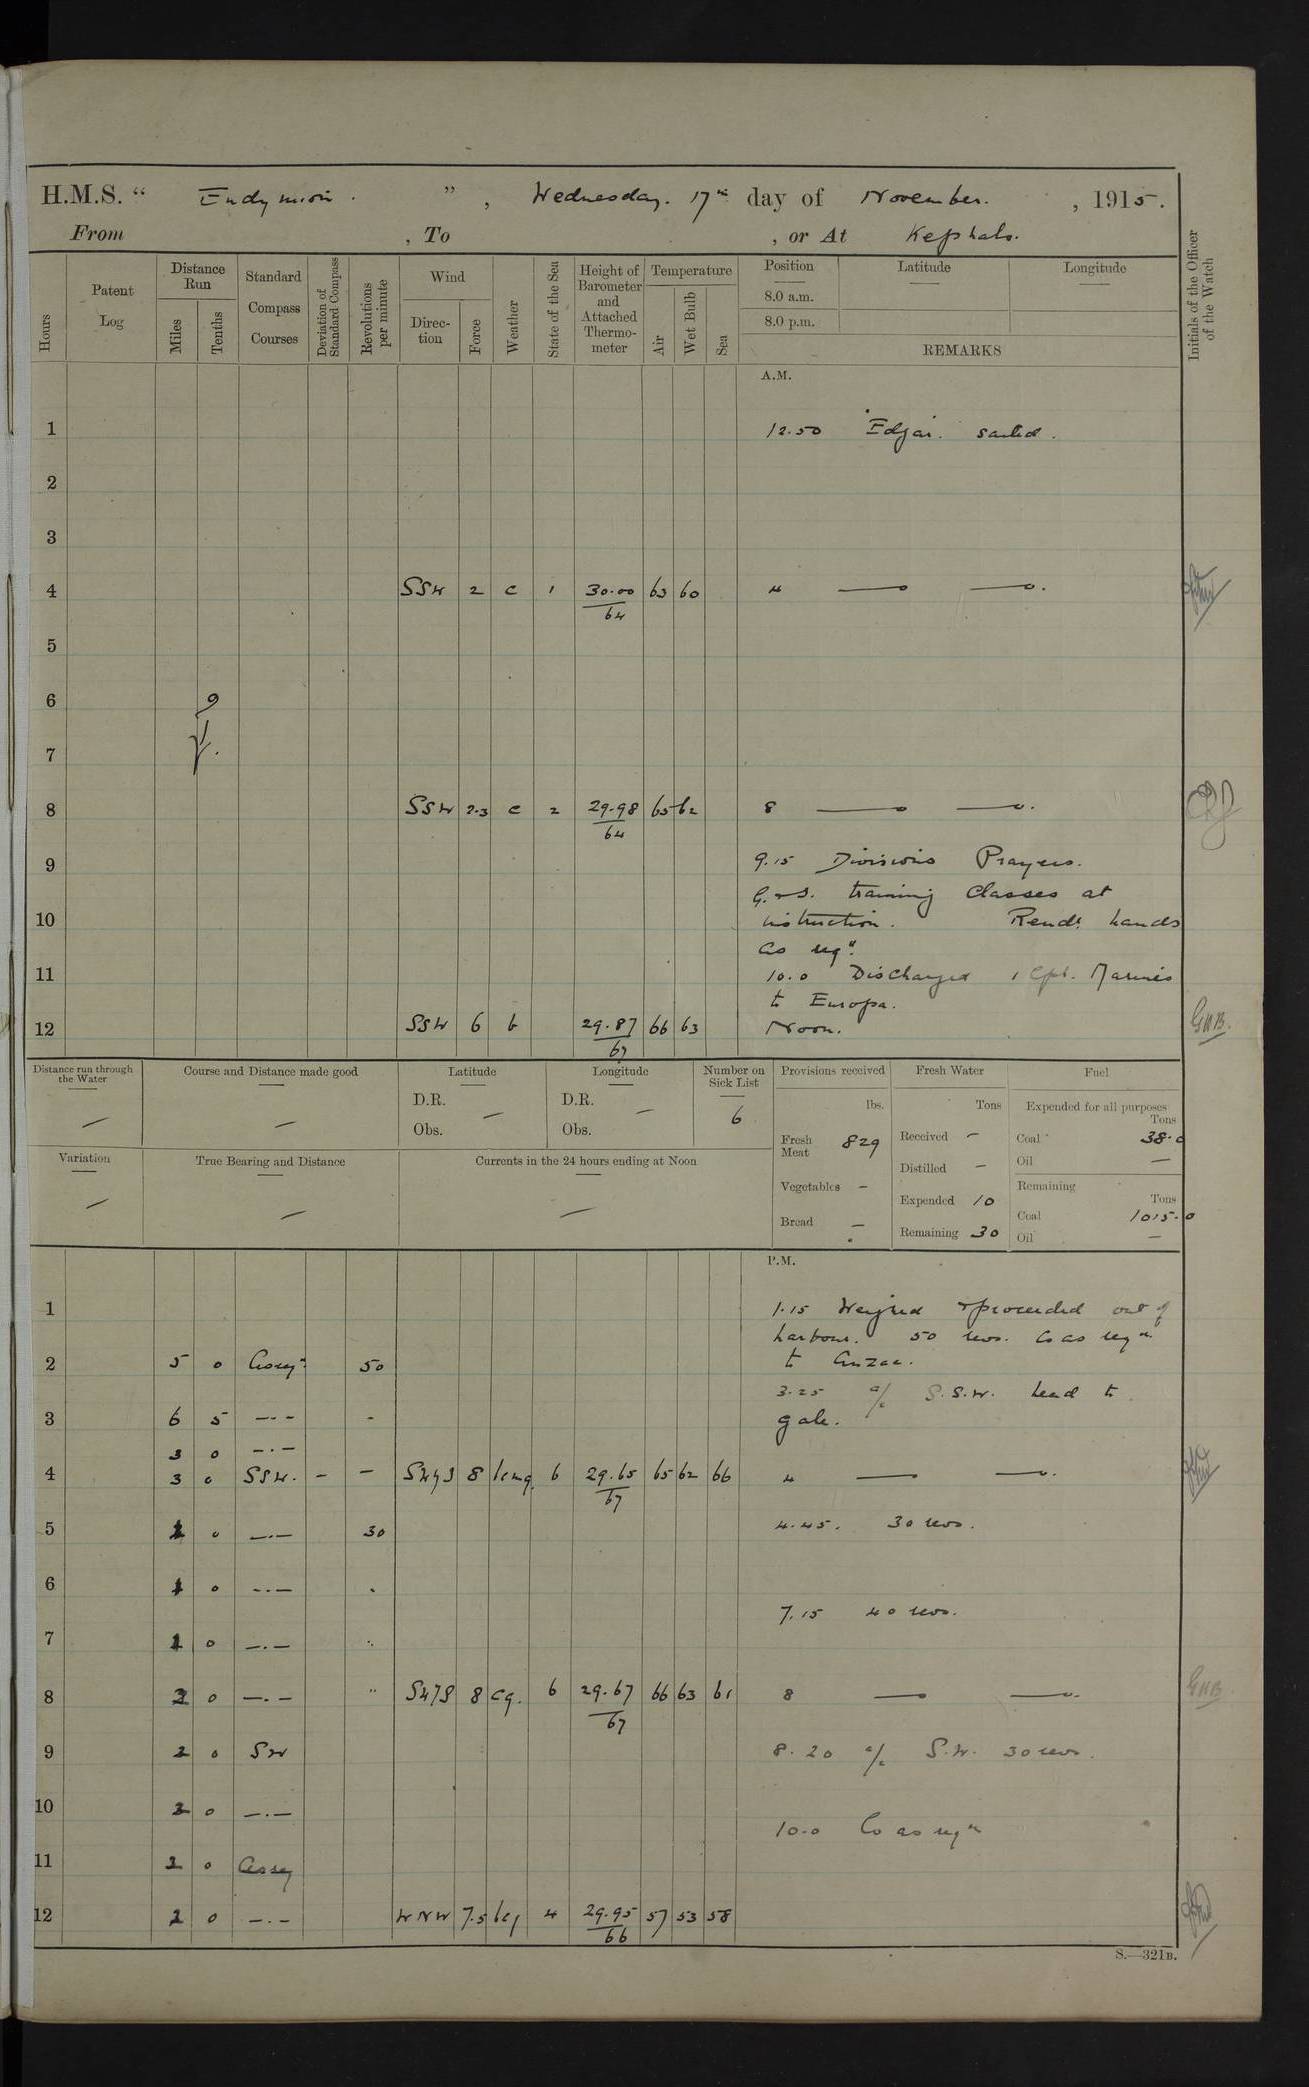 H.M.S. “ Endymion. ” , Wednesday. 17th day of November. , 1915.
From , To , or At Kephalo.
Hours
Patent Log
Distance Run
Miles
Tenths
Standard Compass Courses
Deviation of Standard Compass
Revolutions per minute
Wind
Direc-tion
Force
Weather
State of the Sea
Height of Barometer and Attached Thermo-meter
Temperature
Air
Wet Bulb
Sea
Position
8.0 a.m.
8.0 p.m.
Latitude
Longitude
REMARKS
Initials of the Officer of the Watch
A.M.
1 12.50 'Edgar' sailed.
2
3
4 SSW 2 c 1 30.00 63 60 4 — —.
64
5
6
7
8 SSW 2.3 c 2 29.98 65 62 8 — —.
64
9 9.15 Divisions Prayers.
G. & S. training Classes at
10 instruction. Remdr hands
as reqd.
11 10.0 Discharged 1 Cpl. Marines
to Europa.
12 SSW 6 b 29.87 66 63 Noon. GHB.
67
Distance run through the Water
—
Course and Distance made good
—
Latitude
D.R. —
Obs.
Longitude
D.R. —
Obs.
Number on Sick List
6
Provisions received
lbs.
Fresh Meat 829
Vegetables —
Bread —
Fresh Water
Tons
Received —
Distilled —
Expended 10
Remaining 30
Fuel
Expended for all purposes
Tons
Coal 38.0
Oil —
Remaining
Tons
Coal 1015.0
Oil —
Variation
—
True Bearing and Distance
—
Currents in the 24 hours ending at Noon
—
P.M.
1 1.15 Weighed & proceeded out of
harbour. 50 revs. Co as reqd
2 5 0 As reqd 50 to Anzac.
3.25 a/c S.S.W. head to
3 6 5 —.— - gale.
3 0 —.—
4 3 0 SSW. - - 8 6 29.65 65 62 66 4 — —.
67
5 2 0 —.— 30 4.45. 30 revs.
6 1 0 —.—
7.15 40 revs.
7 1 0 —.—
8 2 0 —.— " 8 cq. 6 29.67 66 63 61 8 — —. GHB
67
9 2 0 SW 8.20 a/c S.W. 30 revs.
10 2 0 —.—
10.0 Co as reqd
11 2 0 As req
12 2 0 —.— WNW 7.5 bcq 4 29.95 57 53 58
66
S.—321B.